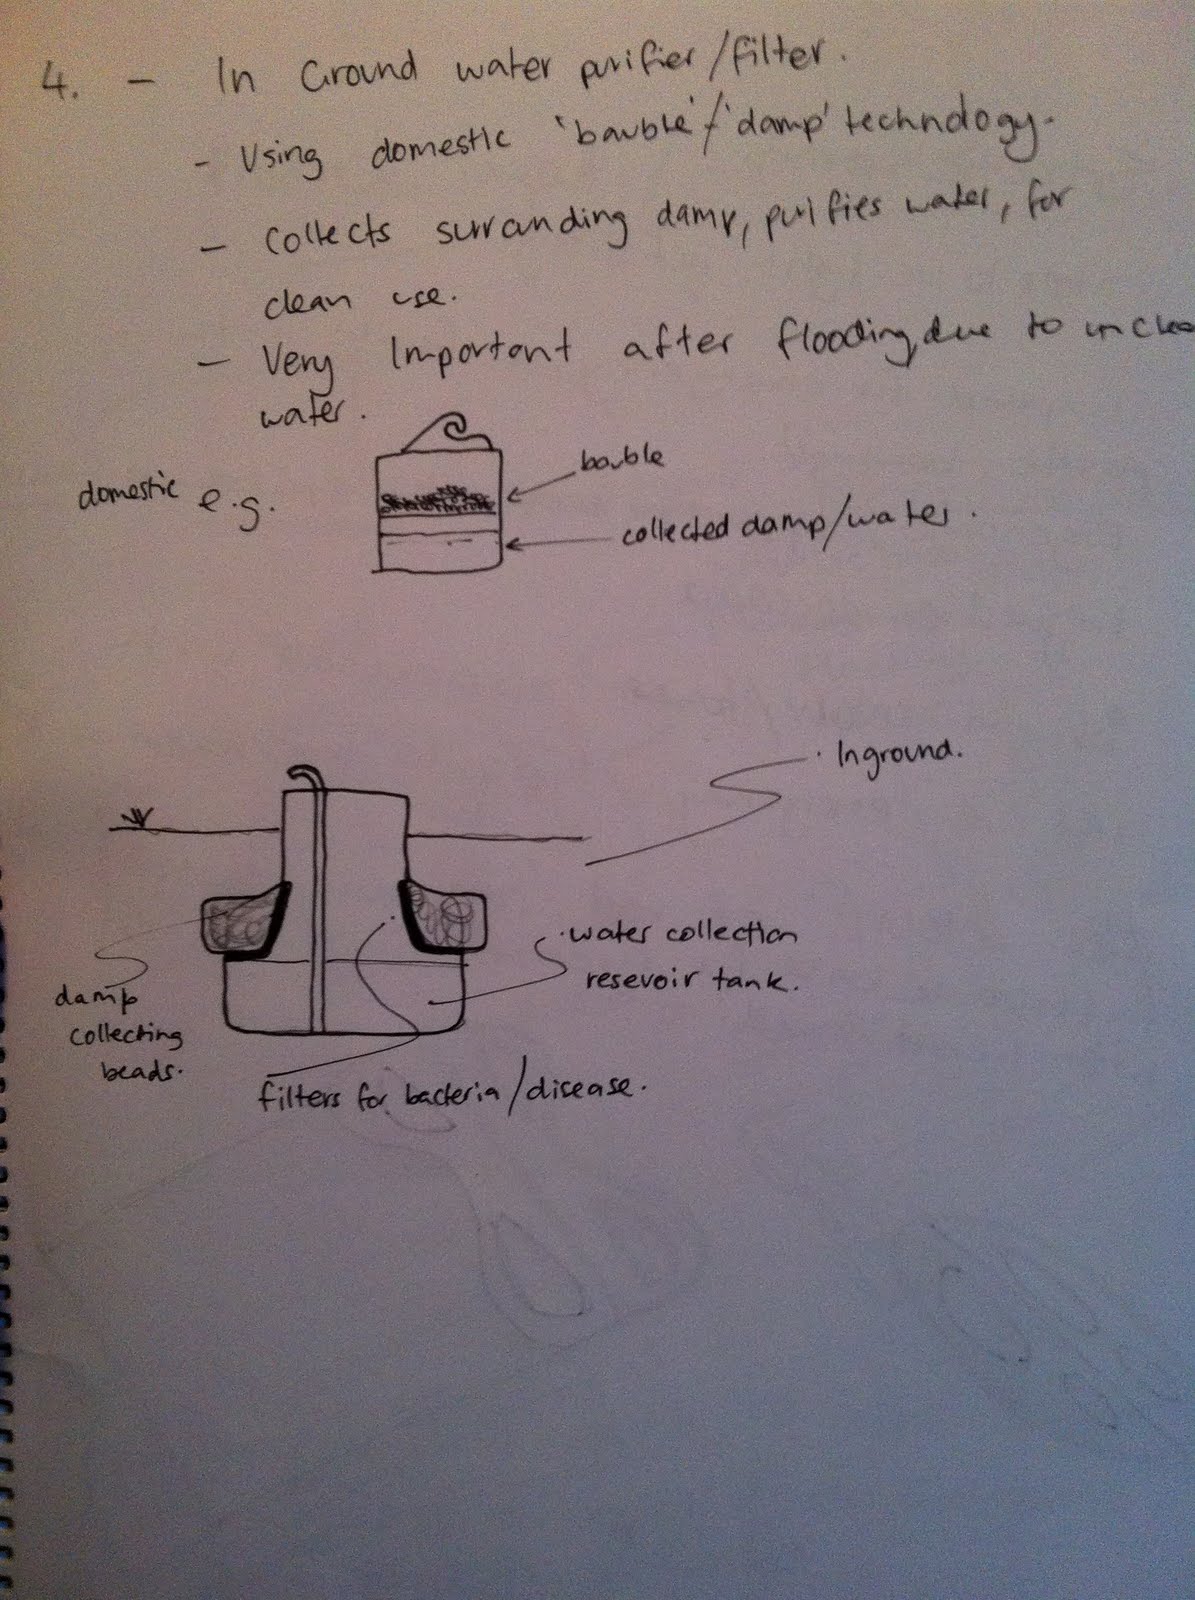 4. - In Ground water purifier/filter.
- Using domestic 'bauble'/'damp' technology.
- Collects surranding damp, purifies water, for
clean use.
- Very Important after flooding, due to unclea
water.
domestic e.g.
bauble
collected damp/water.
Inground.
water collection
resevoir tank.
damp
collecting
beads.
filters for bacteria/disease.